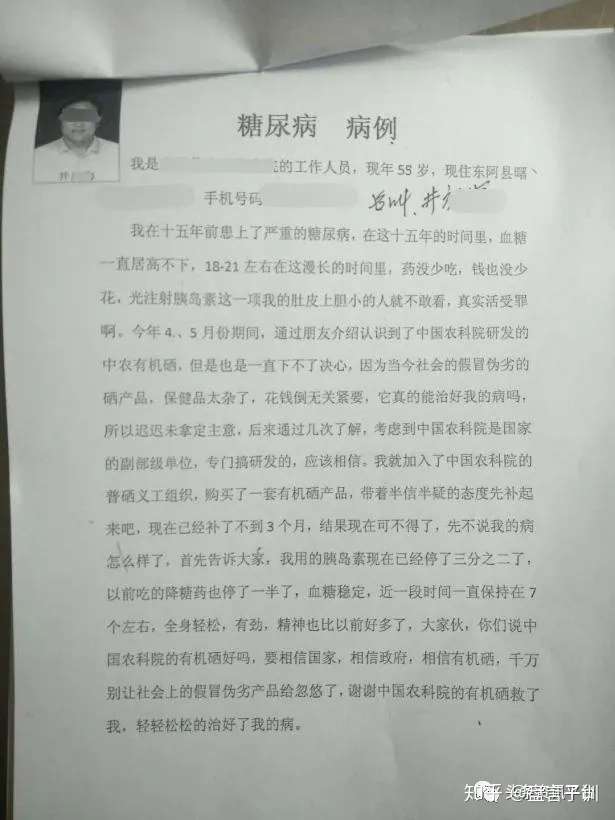 糖尿病　病例
井
我是 的工作人员，现年 55 岁，现住东阿县曙
手机号码
我在十五年前患上了严重的糖尿病，在这十五年的时间里，血糖
一直居高不下，18-21 左右在这漫长的时间里，药没少吃，钱也没少
花，光注射胰岛素这一项我的肚皮上胆小的人就不敢看，真实活受罪
啊。今年 4.、5 月份期间，通过朋友介绍认识到了中国农科院研发的
中农有机硒，但是也是一直下不了决心，因为当今社会的假冒伪劣的
硒产品，保健品太杂了，花钱倒无关紧要，它真的能治好我的病吗，
所以迟迟未拿定主意，后来通过几次了解，考虑到中国农科院是国家
的副部级单位，专门搞研发的，应该相信。我就加入了中国农科院的
普硒义工组织，购买了一套有机硒产品，带着半信半疑的态度先补起
来吧，现在已经补了不到 3 个月，结果现在可不得了，先不说我的病
怎么样了，首先告诉大家，我用的胰岛素现在已经停了三分之二了，
以前吃的降糖药也停了一半了，血糖稳定，近一段时间一直保持在 7
个左右，全身轻松，有劲，精神也比以前好多了，大家伙，你们说中
国农科院的有机硒好吗，要相信国家，相信政府，相信有机硒，千万
别让社会上的假冒伪劣产品给忽悠了，谢谢中国农科院的有机硒救了
我，轻轻松松的治好了我的病。
知乎